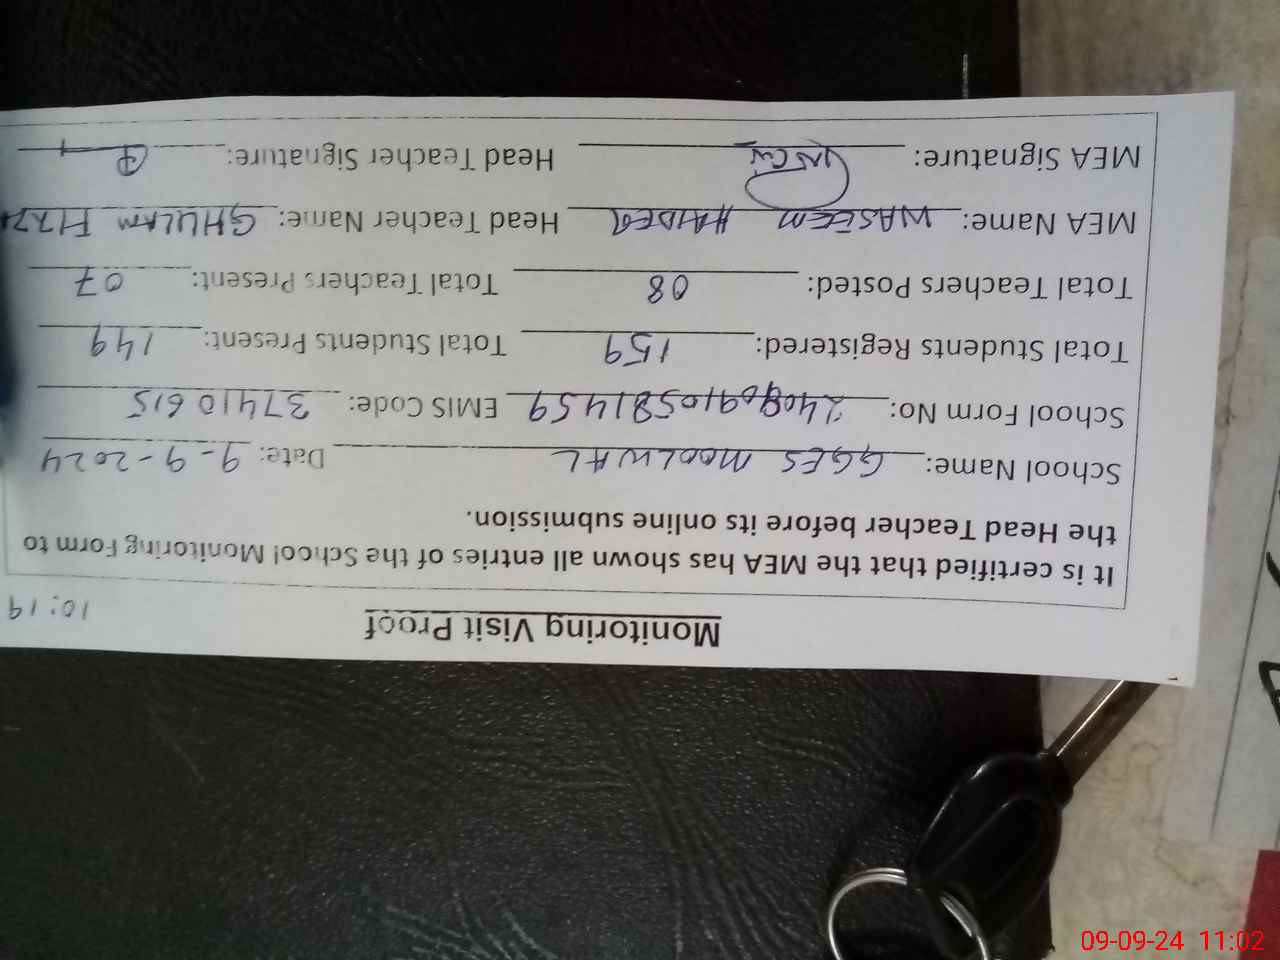 10:19
Monitoring Visit Proof
It is certified that the MEA has shown all entries of the School Monitoring Form to
the Head Teacher before its online submission.
School Name: GGES MOOLWAL Date: 9-9-2024
School Form No: EMIS Code: 37410615
Total Students Registered: 159 Total Students Present: 149
Total Teachers Posted: 08 Total Teachers Present: 07
MEA Name: WASEEM HAIDER Head Teacher Name: GHULAM
MEA Signature: Head Teacher Signature:
09-09-24 11:02